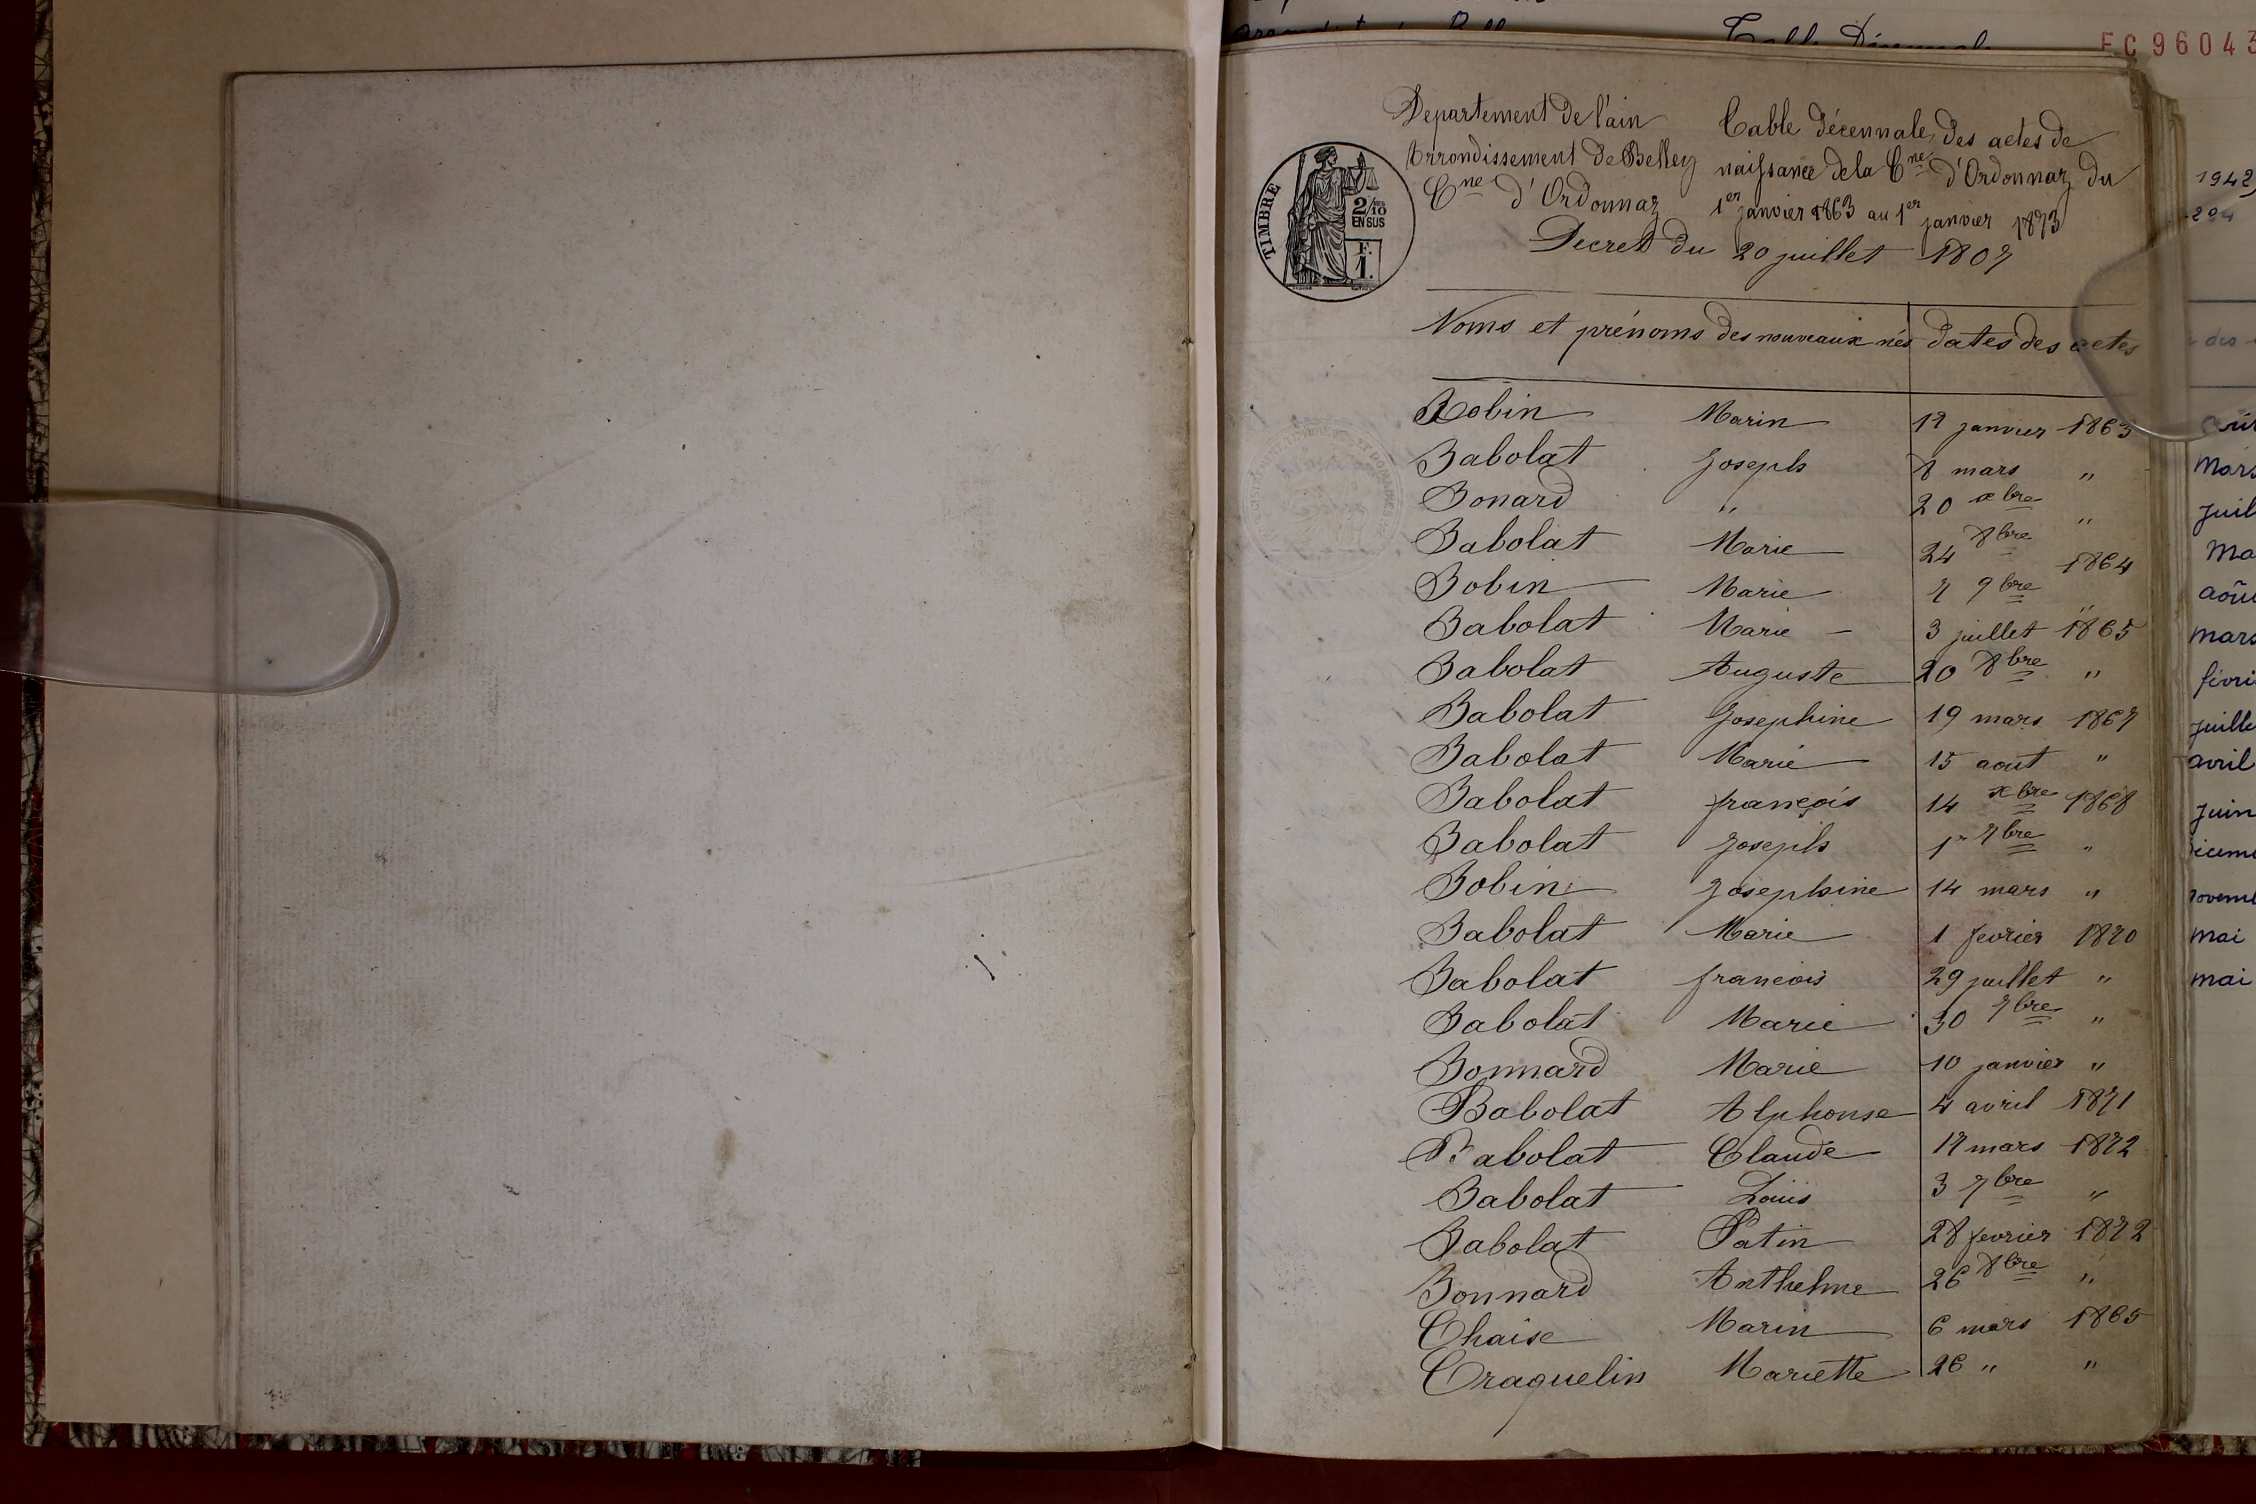 EC 96043
Departement de l'ain
Arrondissement de Belley
Cne d'Ordonnaz
Table décennale des actes de
naissance de la Cne d'Ordonnaz du
1er janvier 1863 au 1er janvier 1873
Decret du 20 juillet 1807
TIMBRE
2/10
EN SUS
F.
1.
Noms et prénoms des nouveaux nés dates des actes
Bobin Marin 17 janvier 1863
Babolat Joseph 8 mars "
Bonard " 20 xbre "
Babolat Marie 24 8bre 1864
Bobin Marie 7 9bre "
Babolat Marie - 3 juillet 1865
Babolat Auguste 20 8bre "
Babolat Josephine 19 mars 1867
Babolat Marie 15 aout "
Babolat françois 14 xbre 1868
Babolat Joseph 1er 7bre "
Bobin Josephine 14 mars "
Babolat Marie 1 fevrier 1870
Babolat francois 29 juillet "
Babolat Marie 30 7bre "
Bonnard Marie 10 janvier "
Babolat Alphonse 4 avril 1871
Babolat Claude 17 mars 1872
Babolat Louis 3 7bre "
Babolat Patin 28 fevrier 1872
Bonnard Anthelme 26 8bre "
Chaise Marin 6 mars 1865
Craquelin Mariette 26 " "
1942
294
Mars
juil
Ma
aoû
mars
févri
juille
avril
juin
mai
mai